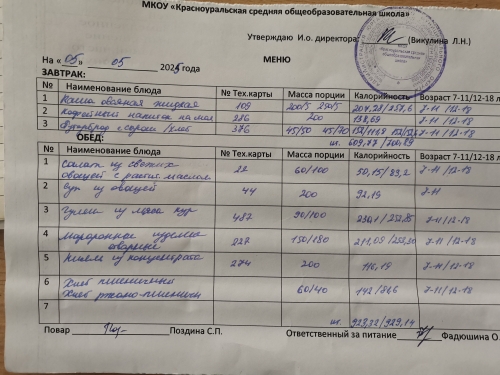 МКОУ «Красноуральская средняя общеобразовательная школа»
Утверждаю И.о. директора: (Викулина Л.Н.)
МЕНЮ
На « 05 » 05 2025 года
ЗАВТРАК:
№ Наименование блюда № Тех.карты Масса порции Калорийность Возраст 7-11/12-18 л
1 Каша овсяная жидкая 109 200/5 250/5 7-11/12-18
2 Кофейный напиток на мол 286 200 7-11/12-18
3 Бутерброд с сыром /хлеб 376 45/50 7-11/12-18
ОБЕД:
№ Наименование блюда № Тех.карты Масса порции Калорийность Возраст 7-11/12-18 л
1 Салат из свежих
овощей с растит. маслом 22 60/100 50,15/83,2 7-11/12-18
2 Суп из овощей 44 200 92,19 7-11
3 Гуляш из мяса кур 487 90/100 7-11/12-18
4 Макаронные изделия
отварные 227 150/180 7-11/12-18
5 Кисель из концентрата 274 200 116,19 7-11/12-18
6 Хлеб пшеничный
Хлеб ржано-пшеничн 60/40 7-11/12-18
7
928,32/929,14
Повар Поздина С.П. Ответственный за питание Фадюшина О.